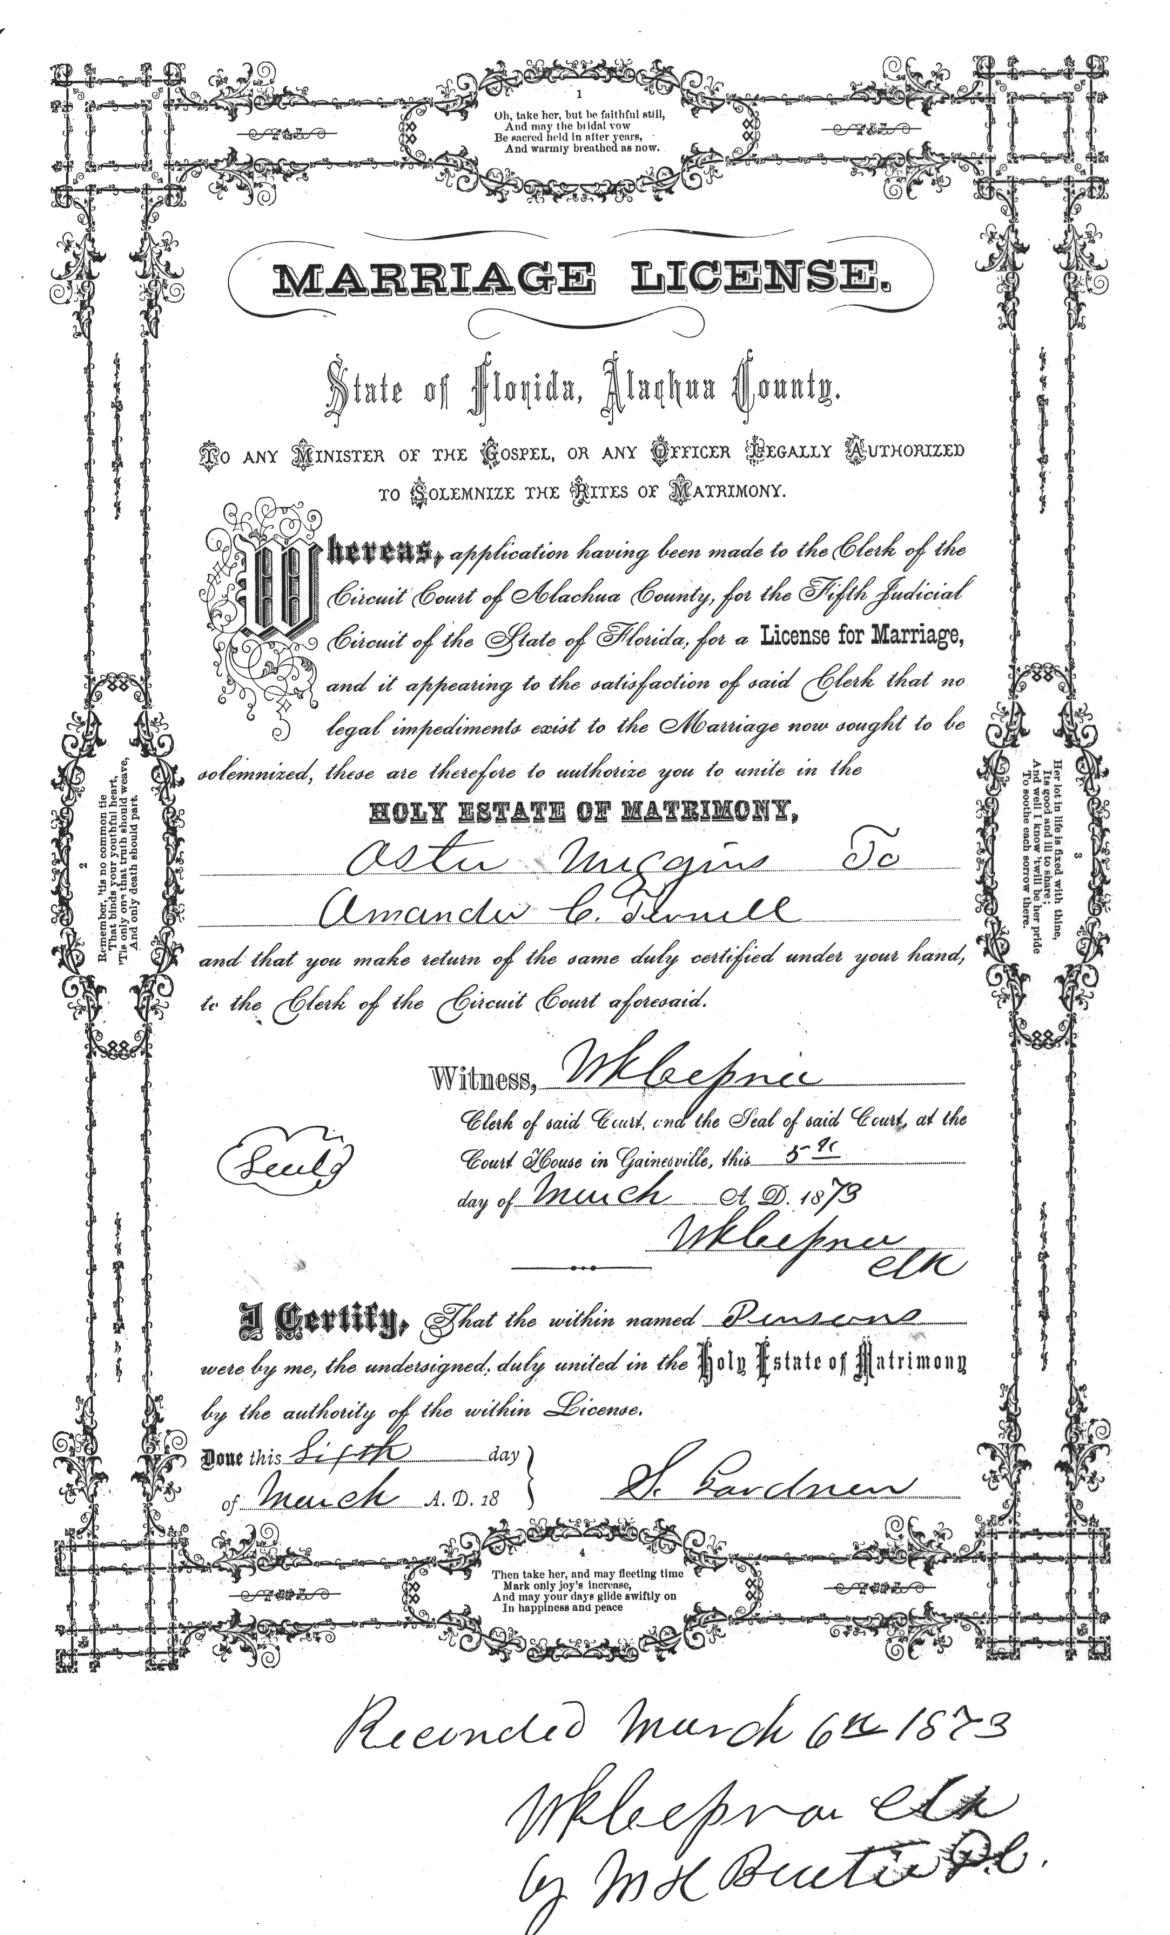 1
Oh, take her, but be faithful still,
And may the bridal vow
Be sacred held in after years,
And warmly breathed as now.
MARRIAGE LICENSE.
State of Florida, Alachua County.
TO ANY MINISTER OF THE GOSPEL, OR ANY OFFICER LEGALLY AUTHORIZED
TO SOLEMNIZE THE RITES OF MATRIMONY.
Whereas, application having been made to the Clerk of the
Circuit Court of Alachua County, for the Fifth Judicial
Circuit of the State of Florida, for a License for Marriage,
and it appearing to the satisfaction of said Clerk that no
legal impediments exist to the Marriage now sought to be
solemnized, these are therefore to authorize you to unite in the
HOLY ESTATE OF MATRIMONY,
To
Amanda C.
and that you make return of the same duly certified under your hand,
to the Clerk of the Circuit Court aforesaid.
Witness,
Clerk of said Court, and the Seal of said Court, at the
Court House in Gainesville, this 5th
day of March A. D. 1873
Clk
Seal
I Certify, That the within named Persons
were by me, the undersigned, duly united in the Holy Estate of Matrimony
by the authority of the within License.
Done this Sixth day
of March A. D. 18
S. Gardner
2
Remember, 'tis no common tie
That binds your youthful heart,
'Tis only one that truth should weave,
And only death should part.
3
Her lot in life is fixed with thine,
Its good and ill to share;
And well I know 'twill be her pride
To soothe each sorrow there.
4
Then take her, and may fleeting time
Mark only joy's increase,
And may your days glide swiftly on
In happiness and peace
Recorded March 6th 1873
Clk
by M H D.C.